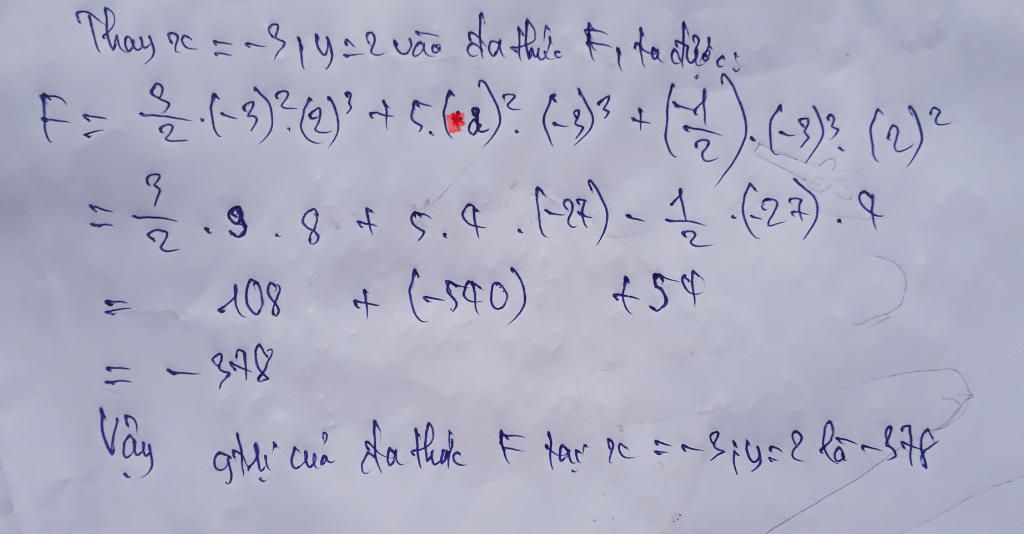 Thay x = -3; y = 2 vào đa thức F, ta được:
F = 3/2 . (-3)² . (2)³ + 5 . (2)² . (-3)³ + (-1/2) . (-3)³ . (2)²
= 3/2 . 9 . 8 + 5 . 4 . (-27) - 1/2 . (-27) . 4
= 108 + (-540) + 54
= - 378
Vậy gtrị của đa thức F tại x = -3; y = 2 là -378